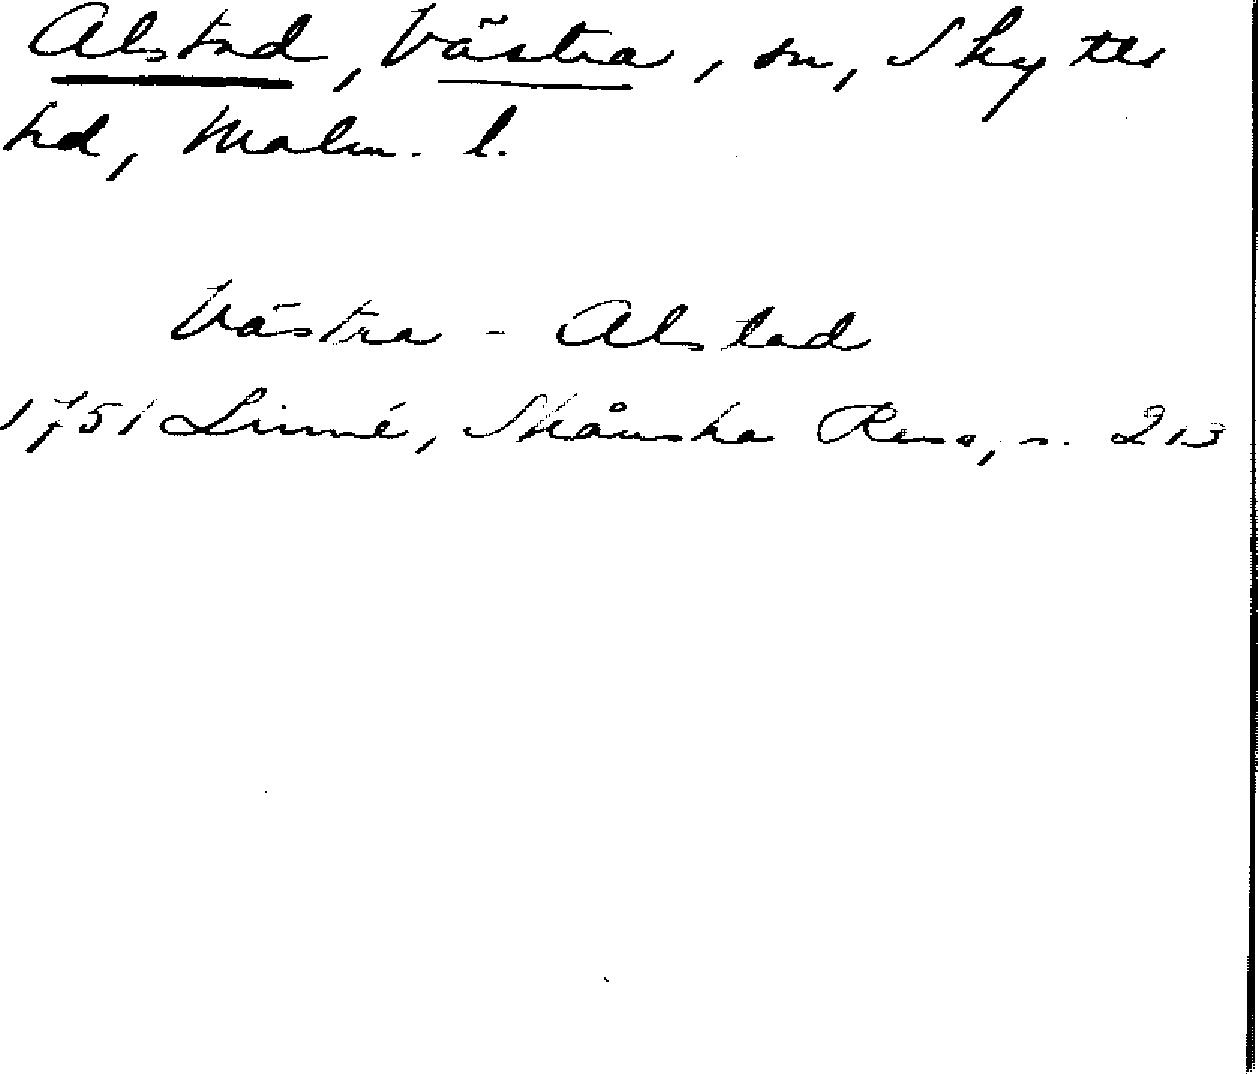 Alstad, Västra, sn, Skytts
hd, Malm. l.
Västra - Alstad
1751 Linné, Skånska Resa, s. 213